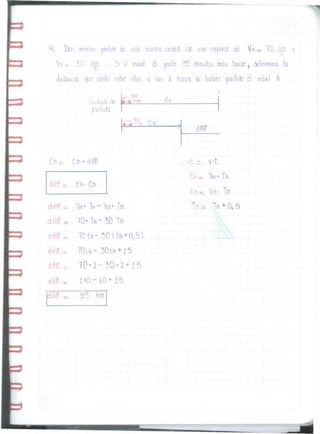 4. Dos móviles parten de una misma ciudad con una rapidez de VA = 70 y
VB = 30 . Si el móvil B parte 30 minutos más tarde, determina la
distancia que existe entre ellos a las 2 horas de haber partido el móvil A.
Ciudad de partida
eA
eB
dAB
eA = eB + dAB
dAB = eA - eB
dAB = VA · TA - VB · TB
dAB = 70 · TA - 30 TB
dAB = 70 tA - 30 (tA + 0,5)
dAB = 70tA - 30tA + 15
dAB = 70 · 2 - 30 · 2 + 15
dAB = 140 - 60 + 15
dAB = 95 km
e = v·t
eA = VA · TA
eB = VB · TB
TB = TA + 0,5